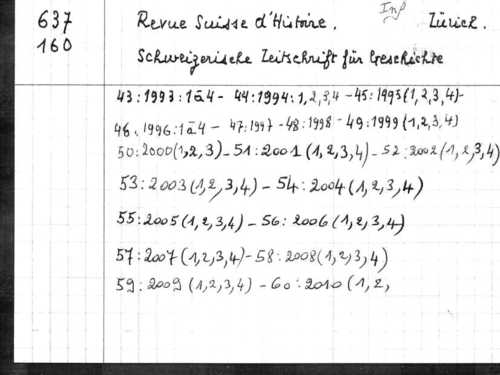 637 Revue Suisse d'Histoire. Inf Zürich.
160 Schweizerische Zeitschrift für Geschichte
43:1993:1à4 - 44:1994:1,2,3,4 - 45:1995(1,2,3,4)-
46:1996:1à4 - 47:1997 - 48:1998 - 49:1999(1,2,3,4)
50:2000(1,2,3) - 51:2001(1,2,3,4) - 52:2002(1,2,3,4)
53:2003(1,2,3,4) - 54:2004(1,2,3,4)
55:2005(1,2,3,4) - 56:2006(1,2,3,4)
57:2007(1,2,3,4) - 58:2008(1,2,3,4)
59:2009(1,2,3,4) - 60:2010(1,2,